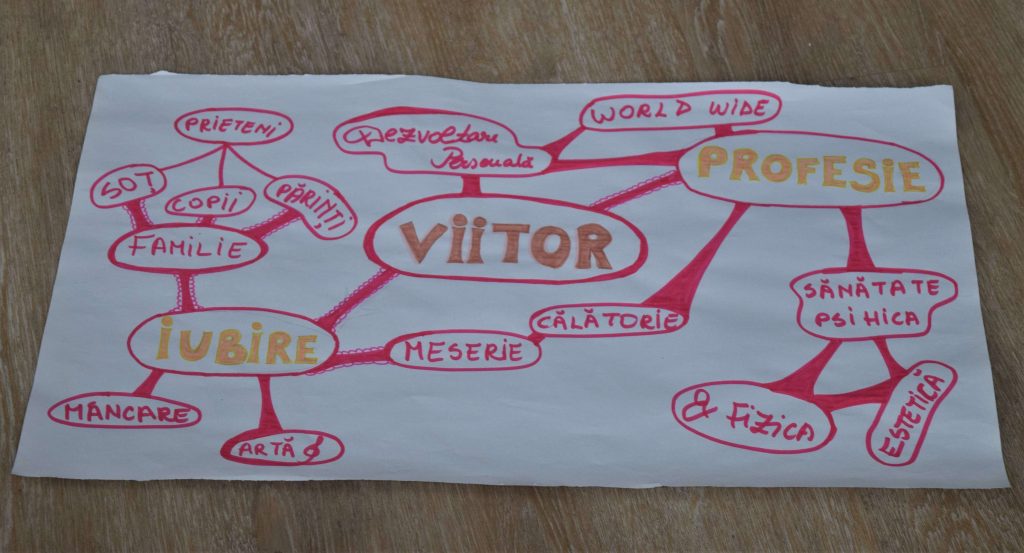 PRIETENI
SOȚ
COPII
PĂRINȚI
FAMILIE
IUBIRE
MÂNCARE
ARTĂ
MESERIE
CĂLĂTORIE
Dezvoltare
Personală
VIITOR
WORLD WIDE
PROFESIE
SĂNĂTATE
PSIHICA
& FIZICA
ESTETICĂ